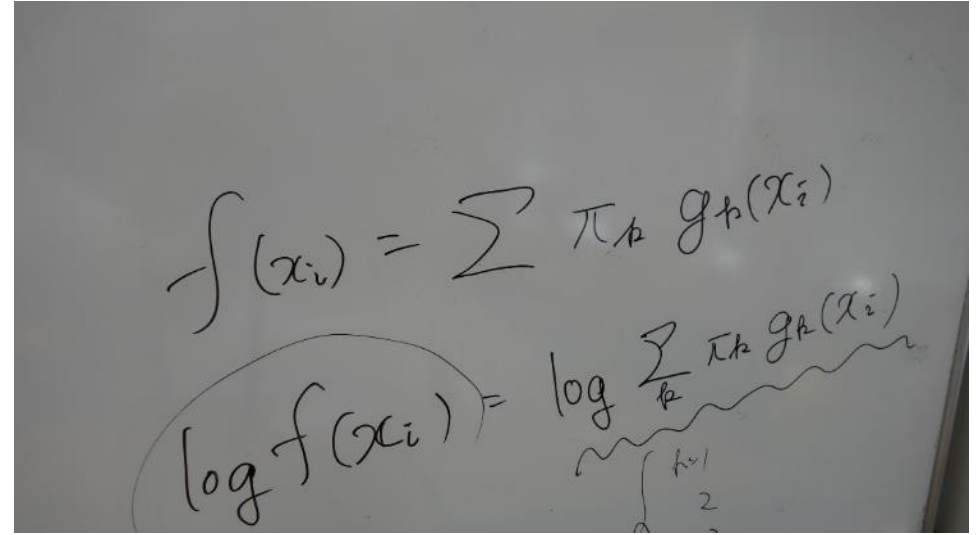 f(xᵢ) = Σ πₖ gₖ(xᵢ)
log f(xᵢ) = log Σₖ πₖ gₖ(xᵢ)
k=1
2